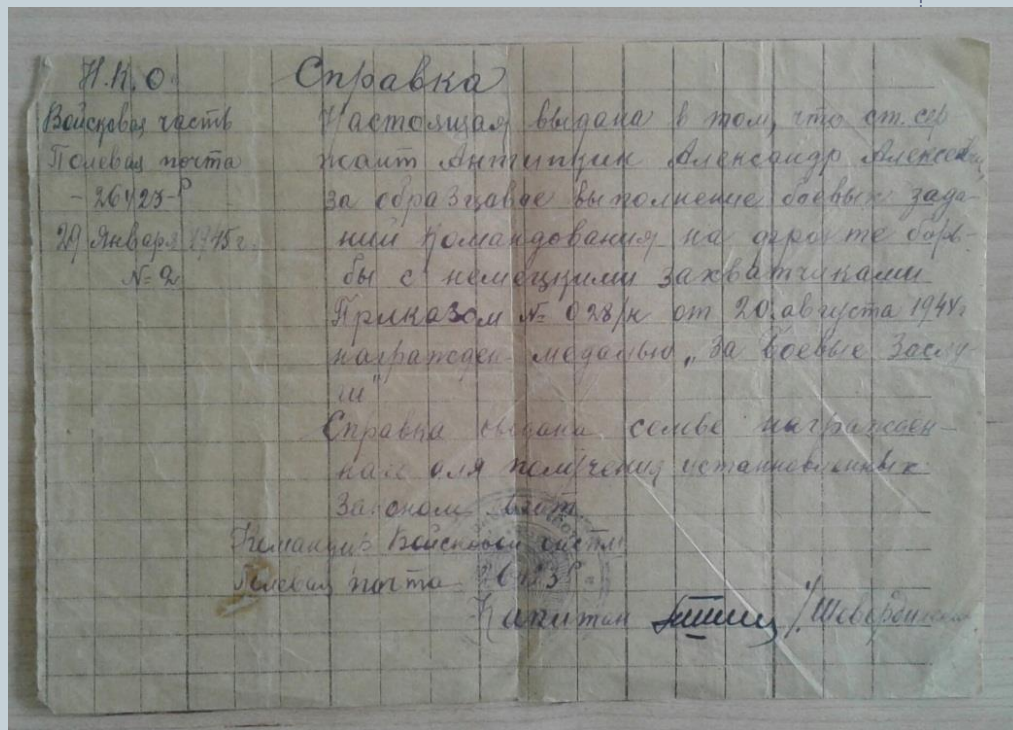 Н.К.О.
Справка
Войсковая часть
Полевая почта
29 Января 1945 г.
№ 2
Настоящая выдана в том, что ст. сер
жант Антипчик Александр Алексеевич,
за образцавое выполнение боевых зада-
ний командования на фронте борь-
бы с немецкими захватчиками
Приказом № 028/н от 20 августа 1944 г.
награжден медалью „За боевые Заслу
ги"
Справка выдана семье награжден-
для получения установленных
Законом льгот
Командир Войсковой части
Полевая почта
Капитан